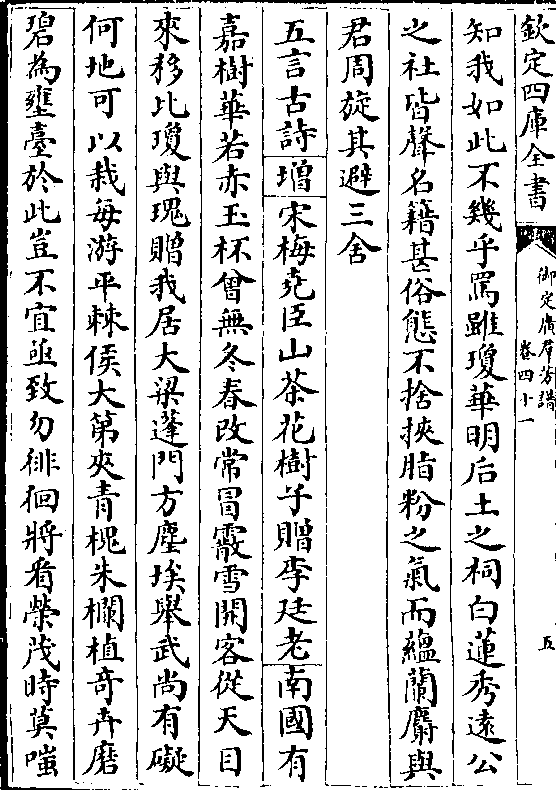 欽定四庫全書
御定廣羣芳譜
卷四十一
五
知我如此不幾乎罵雖瓊華明后土之祠白蓮秀遠公
之社皆聲名籍甚俗態不捨挾脂粉之氣而蘊蘭麝與
君周旋其避三舍
五言古詩增宋梅堯臣山茶花樹子贈李廷老南國有
嘉樹華若赤玉杯曾無冬春改常冒霰雪開客從天目
來移比瓊與瑰贈我居大梁蓬門方塵埃舉武尚有礙
何地可以栽每游平棘侯大第夾青槐朱欄植奇卉磨
碧為壅臺於此豈不宜亟致勿徘徊將看榮茂時莫嗤